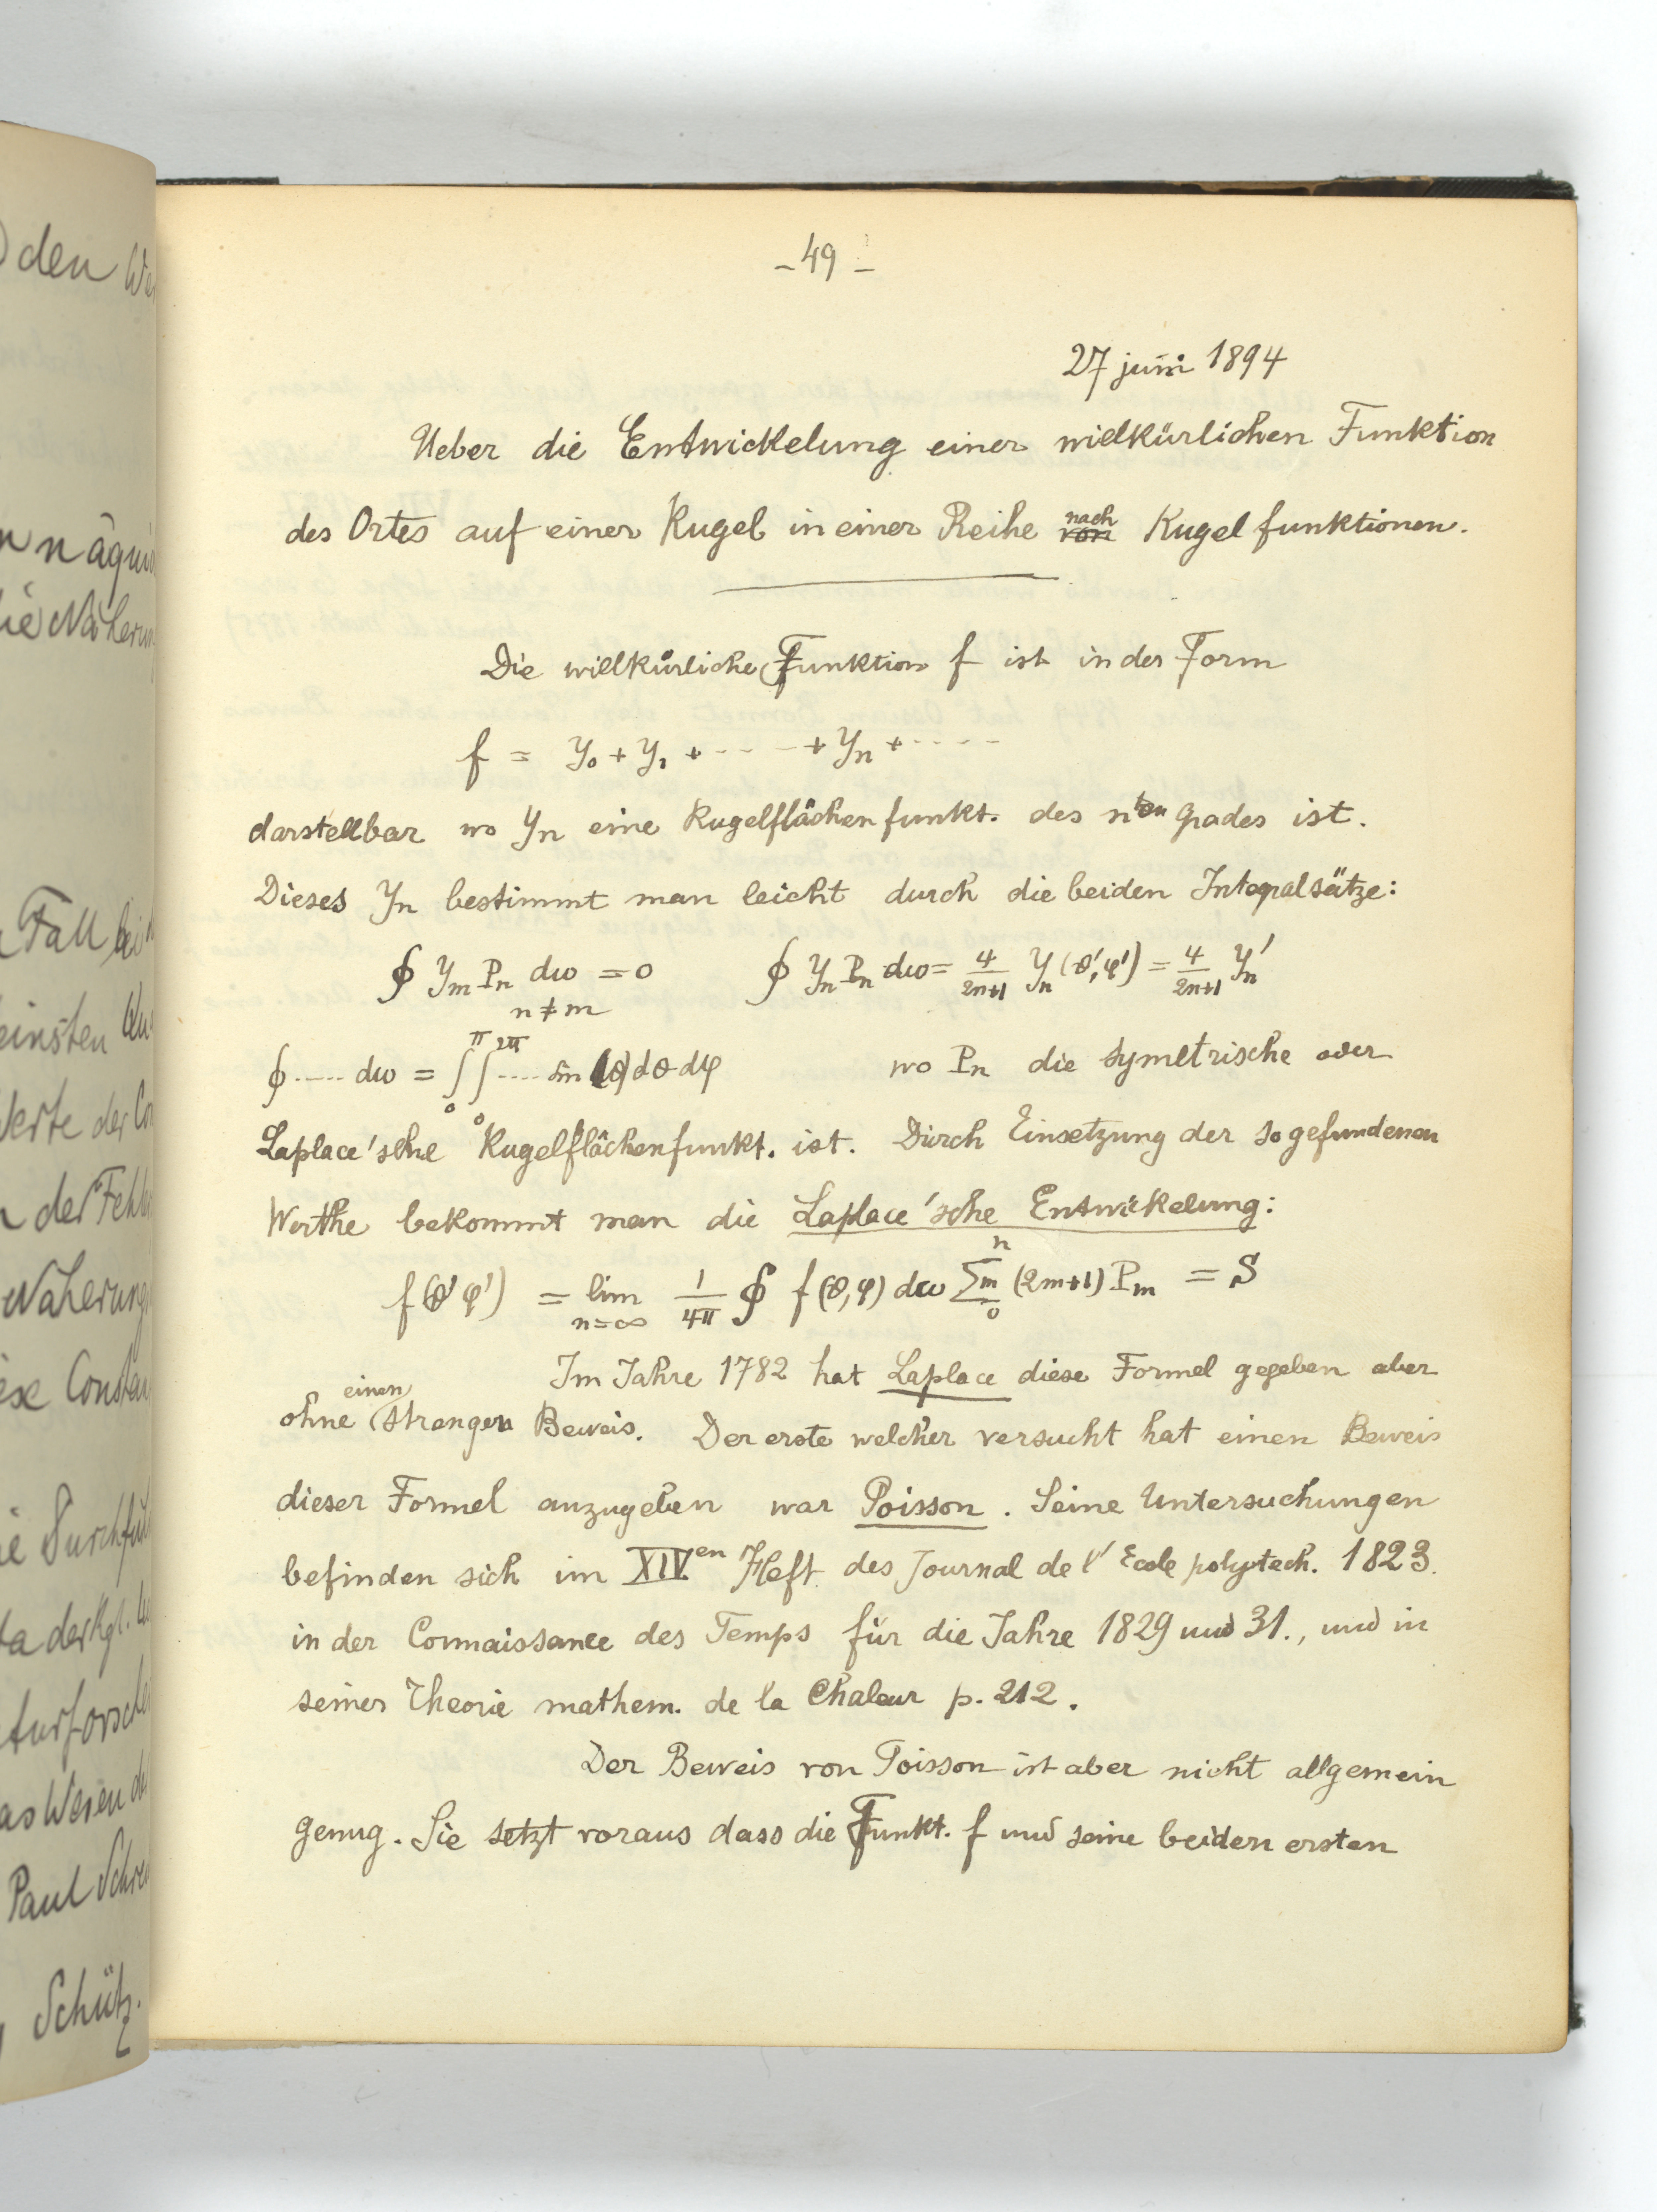 den
n näqui
Fall bei
einsten
Werte der
der Fehl
Näherung
ese Constan
ie Durchfü
ta der Kgl.
turforsche
as Wesen
Paul Schre
Schütz.
– 49 –
27 juni 1894
Ueber die Entwickelung einer wielkürlichen Funktion
des Ortes auf einer Kugel in einer Reihe von nach Kugelfunktionen.
Die willkürliche Funktion f ist in der Form
f = Y₀ + Y₁ + ---- + Yₙ + ----
darstellbar wo Yₙ eine Kugelflächenfunkt. des nten Grades ist.
Dieses Yₙ bestimmt man leicht durch die beiden Integralsätze:
∮ Yₘ Pₙ dω = 0 n ≠ m ∮ Yₙ Pₙ dω = 4/(2n+1) Yₙ(θ',φ') = 4/(2n+1) Yₙ'
∮ ---- dω = ∫₀^π ∫₀^2π ---- sin θ dθ dφ wo Pₙ die symetrische oder
Laplace'sche Kugelflächenfunkt. ist. Durch Einsetzung der so gefundenen
Werthe bekommt man die Laplace'sche Entwickelung:
f(θ' φ') = lim n=∞ 1/4π ∮ f(θ,φ) dω Σₘ₀ⁿ (2m+1) Pₘ = S
Im Jahre 1782 hat Laplace diese Formel gegeben aber
ohne einen strengen Beweis. Der erste welcher versucht hat einen Beweis
dieser Formel anzugeben war Poisson. Seine Untersuchungen
befinden sich im XIVen Heft des Journal de l'Ecole polytech. 1823.
in der Connaissance des Temps für die Jahre 1829 und 31., und in
seiner Theorie mathem. de la Chaleur p. 212.
Der Beweis von Poisson ist aber nicht allgemein
genug. Sie setzt voraus dass die Funkt. f und seine beiden ersten